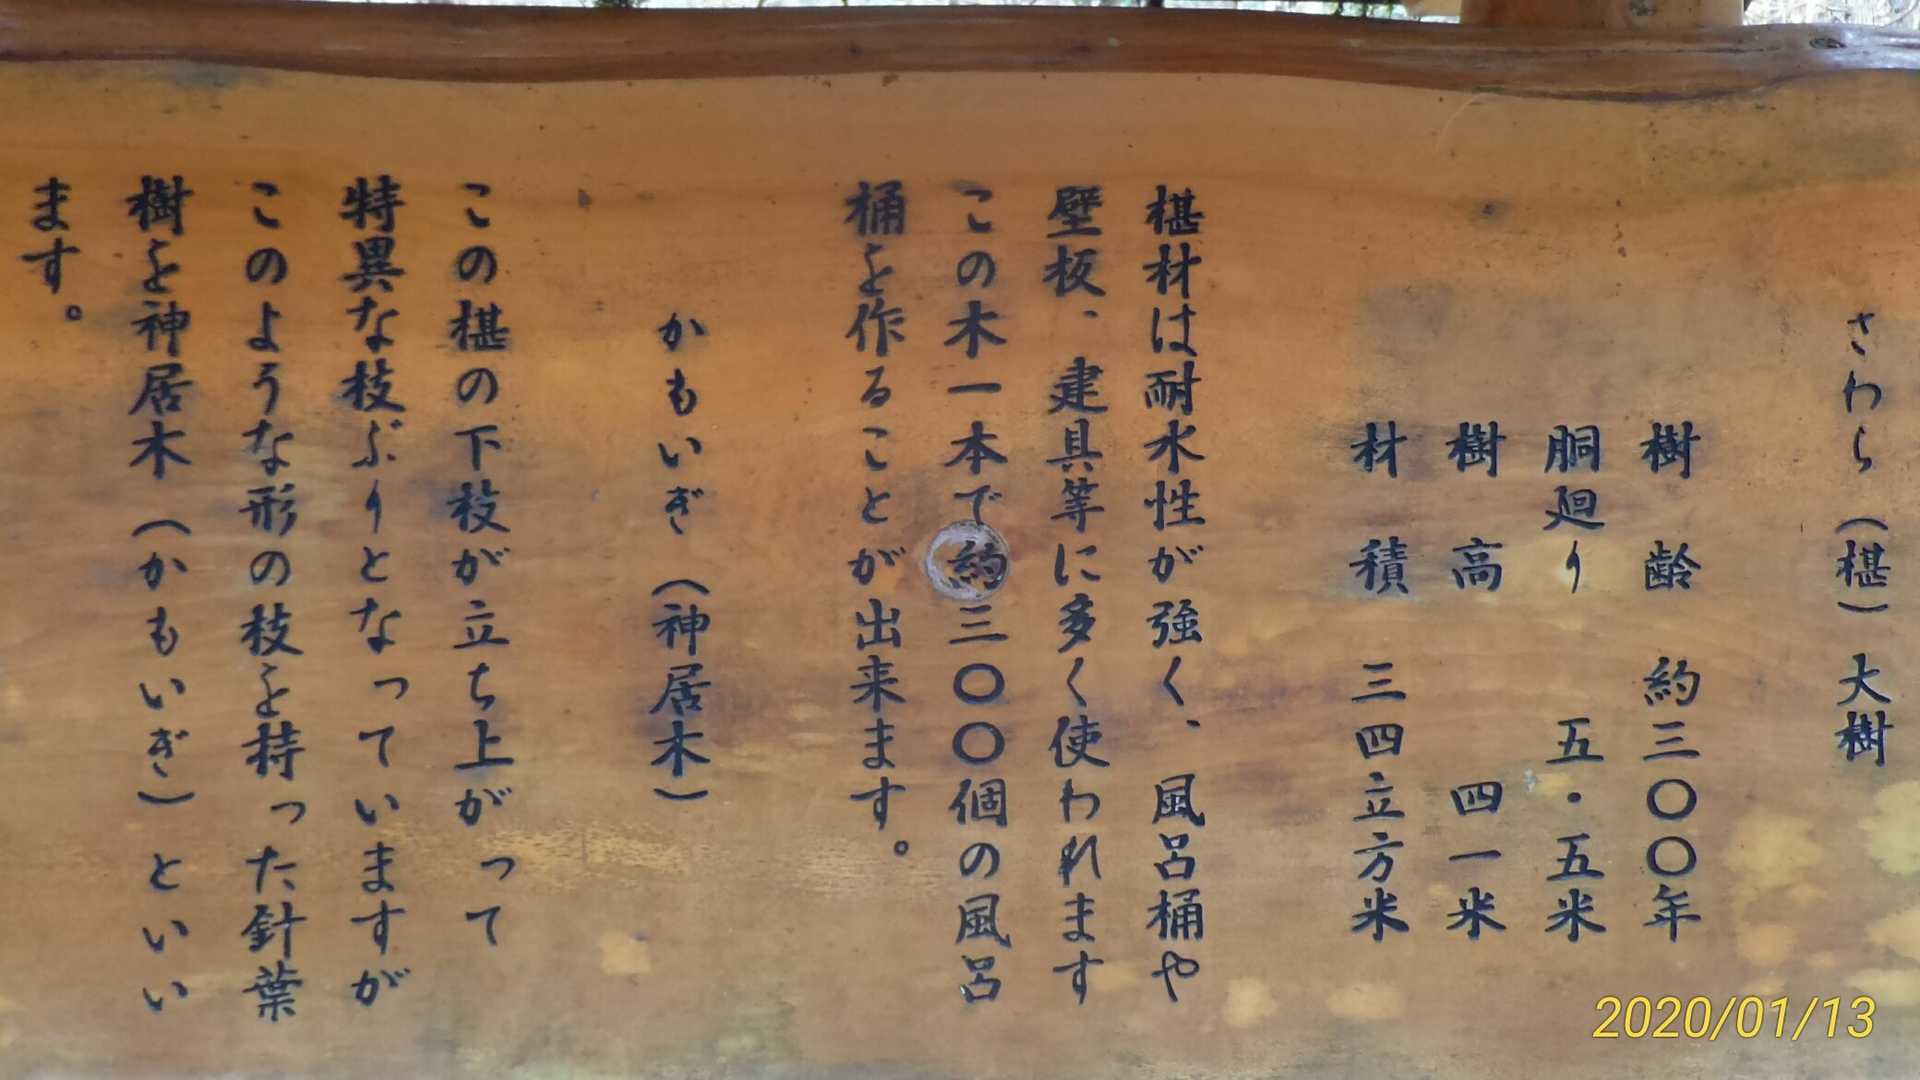 さわら（椹）大樹
樹齢 約三〇〇年
胴廻り 五・五米
樹高 四一米
材積 三四立方米
椹材は耐水性が強く、風呂桶や
壁板、建具等に多く使われます
この木一本で約三〇〇個の風呂
桶を作ることが出来ます。
かもいぎ（神居木）
この椹の下枝が立ち上がって
特異な枝ぶりとなっていますが
このような形の枝を持った針葉
樹を神居木（かもいぎ）といい
ます。
2020/01/13